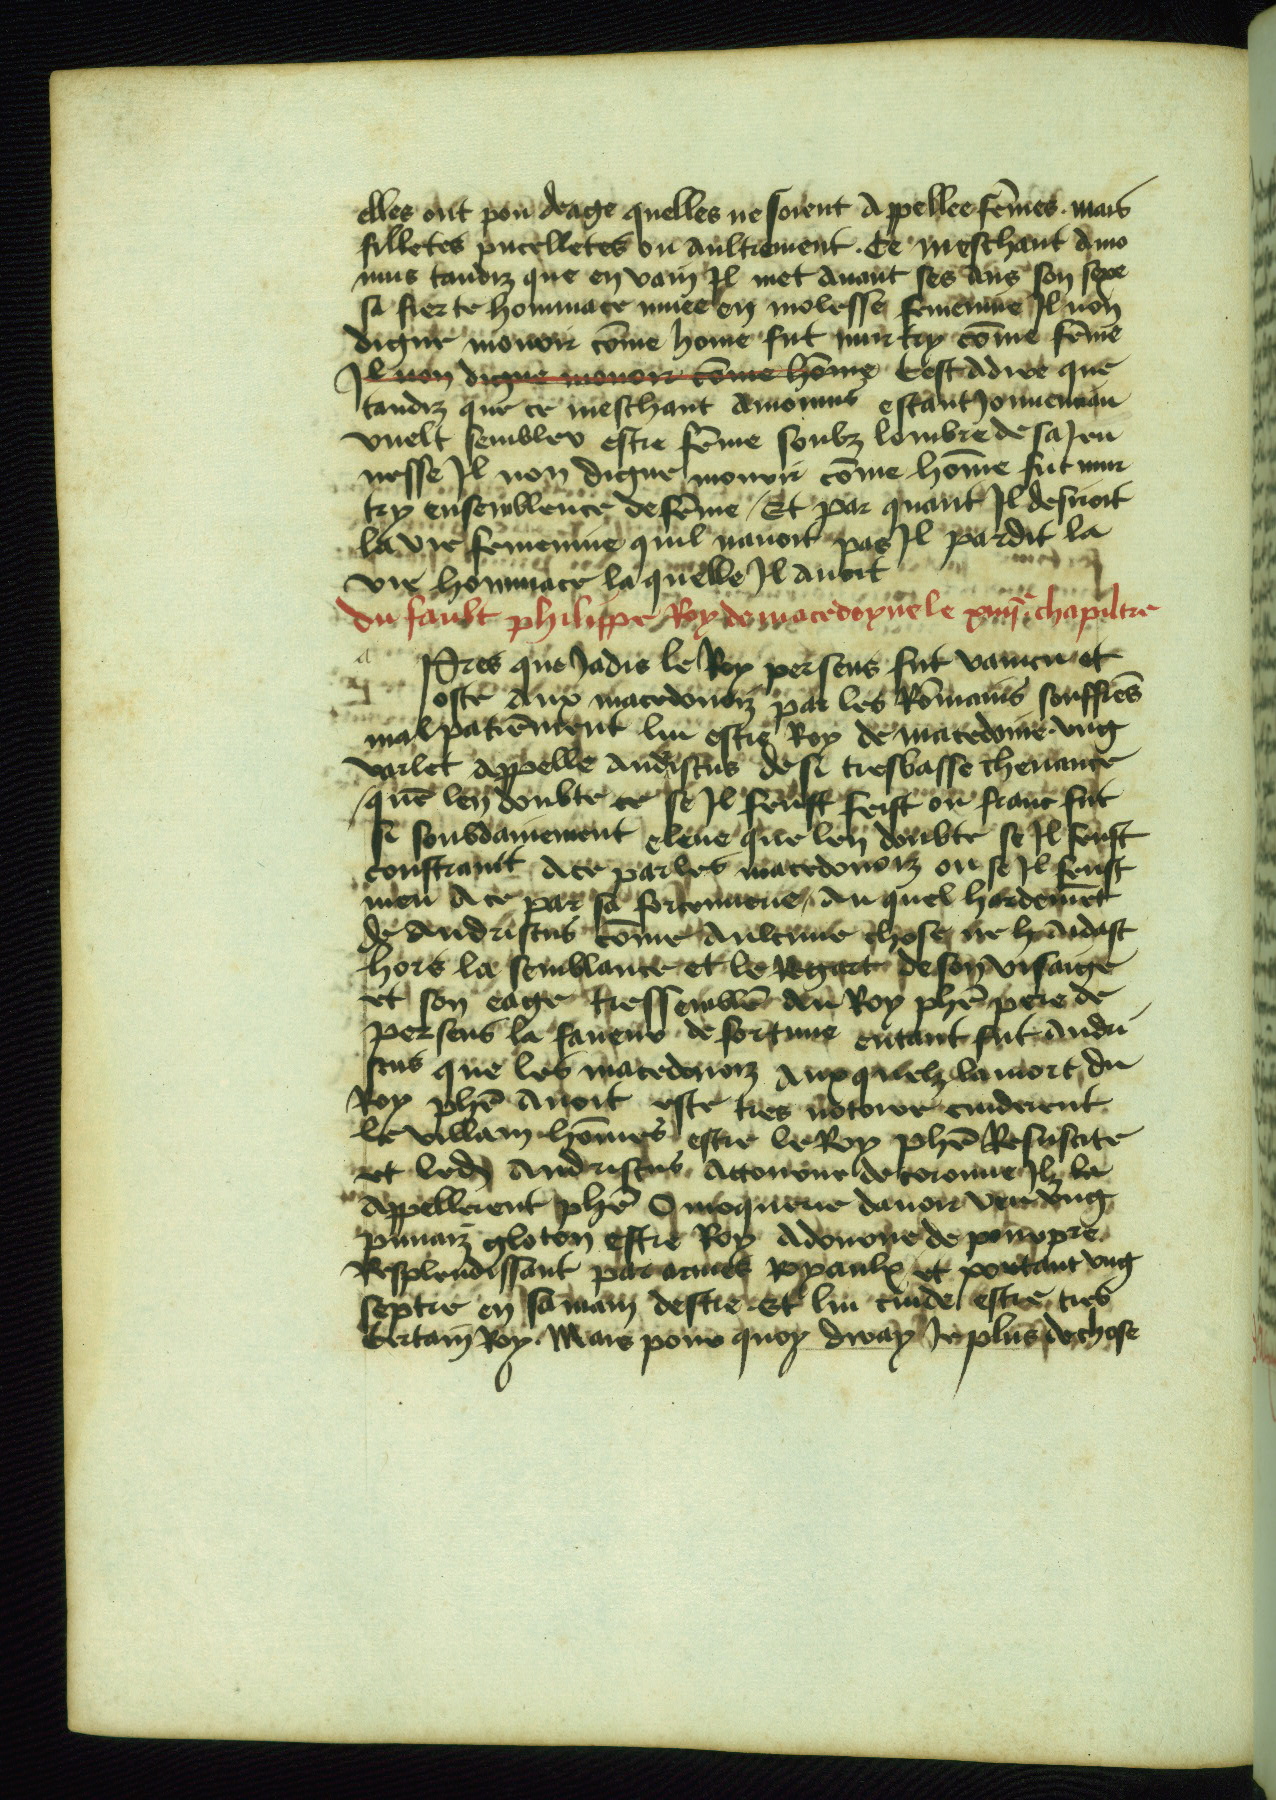 elles ont pou deage quelles ne soient Appellee fe͞mes. mais
filletes pucelletes ou aultrement. Ce meschant Amo
mus tandiz que en vain Il met Auant ses Ans son sexe
sa fierte hommace muee en molesse femenine Il non
digne mourir co͞me home fut murtry co͞me fe͞me
Il non digne mourir co͞me ho͞me Cest Adire que
tandiz que ce meschant Amomus estant Jouuenceau
vuelt sembler estre fe͞me soubz lombre de sa Jeu
nesse Il non digne mourir co͞me ho͞me fut mur
try en semblence de fe͞me / Et par quant Il desiroit
la vie femenine quil nauoit pas Il pardit la
vie hommace la quelle Il Auoit
du faulx philippe Roy de macedoyne le xiiije chapiltre
a
Pres que Jadis le Roy perseus fut vaincu et
oste Aux macedonoiz par les Ro͞mains souffre͞s
mal patie͞ment lui estre Roy de macedoine. vng
varlet Appelle Andriscus de si tresbasse cheuance
que len doubte se Il feust serf ou franc fut
si soubdainement esleue que len doubte se Il feust
constraint Ace par les macedonoiz ou se Il feust
meu Ace par sa forcennerie / Au quel hardeme͞t
de Andriscus co͞me Aulcune chose ne lui Aidast
hors la semblance et le Regart de son visaige
et son eage tressemble͞ Au Roy phe͞ pere de
perseus la faueur de fortune en tant fut Andri
scus que les macedonoiz Aux quelz la mort du
Roy phe͞ Auoit este tres notoire cuiderent
le villain ho͞mes estre le Roy phe͞ Resuscite
et led Andriscus Atourne de coronne Ilz la
Appellerent phe͞ O moquerie dauoir veu vng
punaiz gloton estre Roy Adorne de pourpre
Resplendissant par armes Royaulx et portant vng
septre en sa main destre. Et lui cuide estre tres
certain Roy. Mais pour quoy diray Je plus de chose